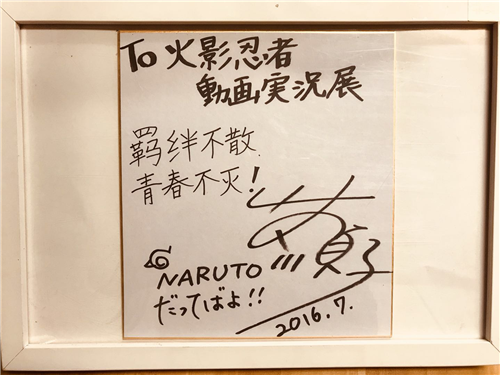 To 火影忍者
動画実況展
羁绊不散
青春不灭!
NARUTO
だってばよ!!
2016.7.